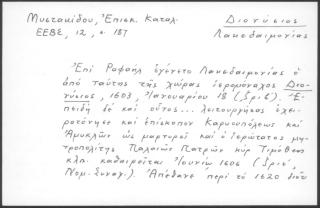 Μυστακίδου, Ἐπισκ. Καταλ.
ΕΕΒΣ, 12, σ. 187
Διονύσιος
Λακεδαιμονίας
Ἐπὶ Ραφαὴλ ἐγένετο Λακεδαιμονίας ὁ
ἀπὸ ταύτης τῆς χώρας ἱερομόναχος Διο-
νύσιος, 1603, Ἰανουαρίου 18
πειδὴ δὲ καὶ οὗτος... λειτουργήσας ἐχει-
ροτόνησε καὶ ἐπίσκοπον Καρυουπόλεως καὶ
Ἀμυκλῶν ὡς μαρτυροῖ καὶ ὁ ἱερώτατος μη-
τροπολίτης Παλαιῶν Πατρῶν κὺρ Τιμόθεος
κλπ. καθαιρεῖται Ἰουνίῳ 1606
Νομ. Συναγ.). Ἀπέθανε περὶ τὸ 1620